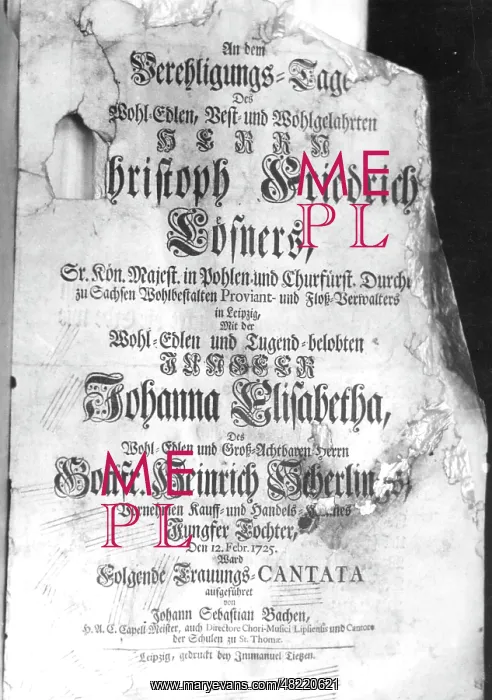 An dem
Verehligungs-Tage
Des
Wohl-Edlen, Vest- und Wohlgelahrten
HERRN
hristoph Friedrich
Lösners,
Sr. Kön. Majest. in Pohlen und Churfürst. Durchl
zu Sachsen Wohlbestalten Proviant- und Floß-Verwalters
in Leipzig,
Mit der
Wohl-Edlen und Tugend-belobten
JUNGFER
Johanna Elisabetha,
Des
Wohl-Edlen und Groß-Achtbaren Herrn
Heinrich Scherlin
Vornehmen Kauff- und Handels-
Jungfer Tochter,
Den 12. Febr. 1725.
Ward
Folgende Trauungs-CANTATA
aufgeführet
von
Johann Sebastian Bachen,
H. A. C. Capell Meister, auch Directore Chori-Musici Lipsiensis und Cantore
der Schulen zu St. Thomæ.
Leipzig, gedruckt bey Immanuel Tietzen.
ME
PL
ME
PL
www.maryevans.com/48220621